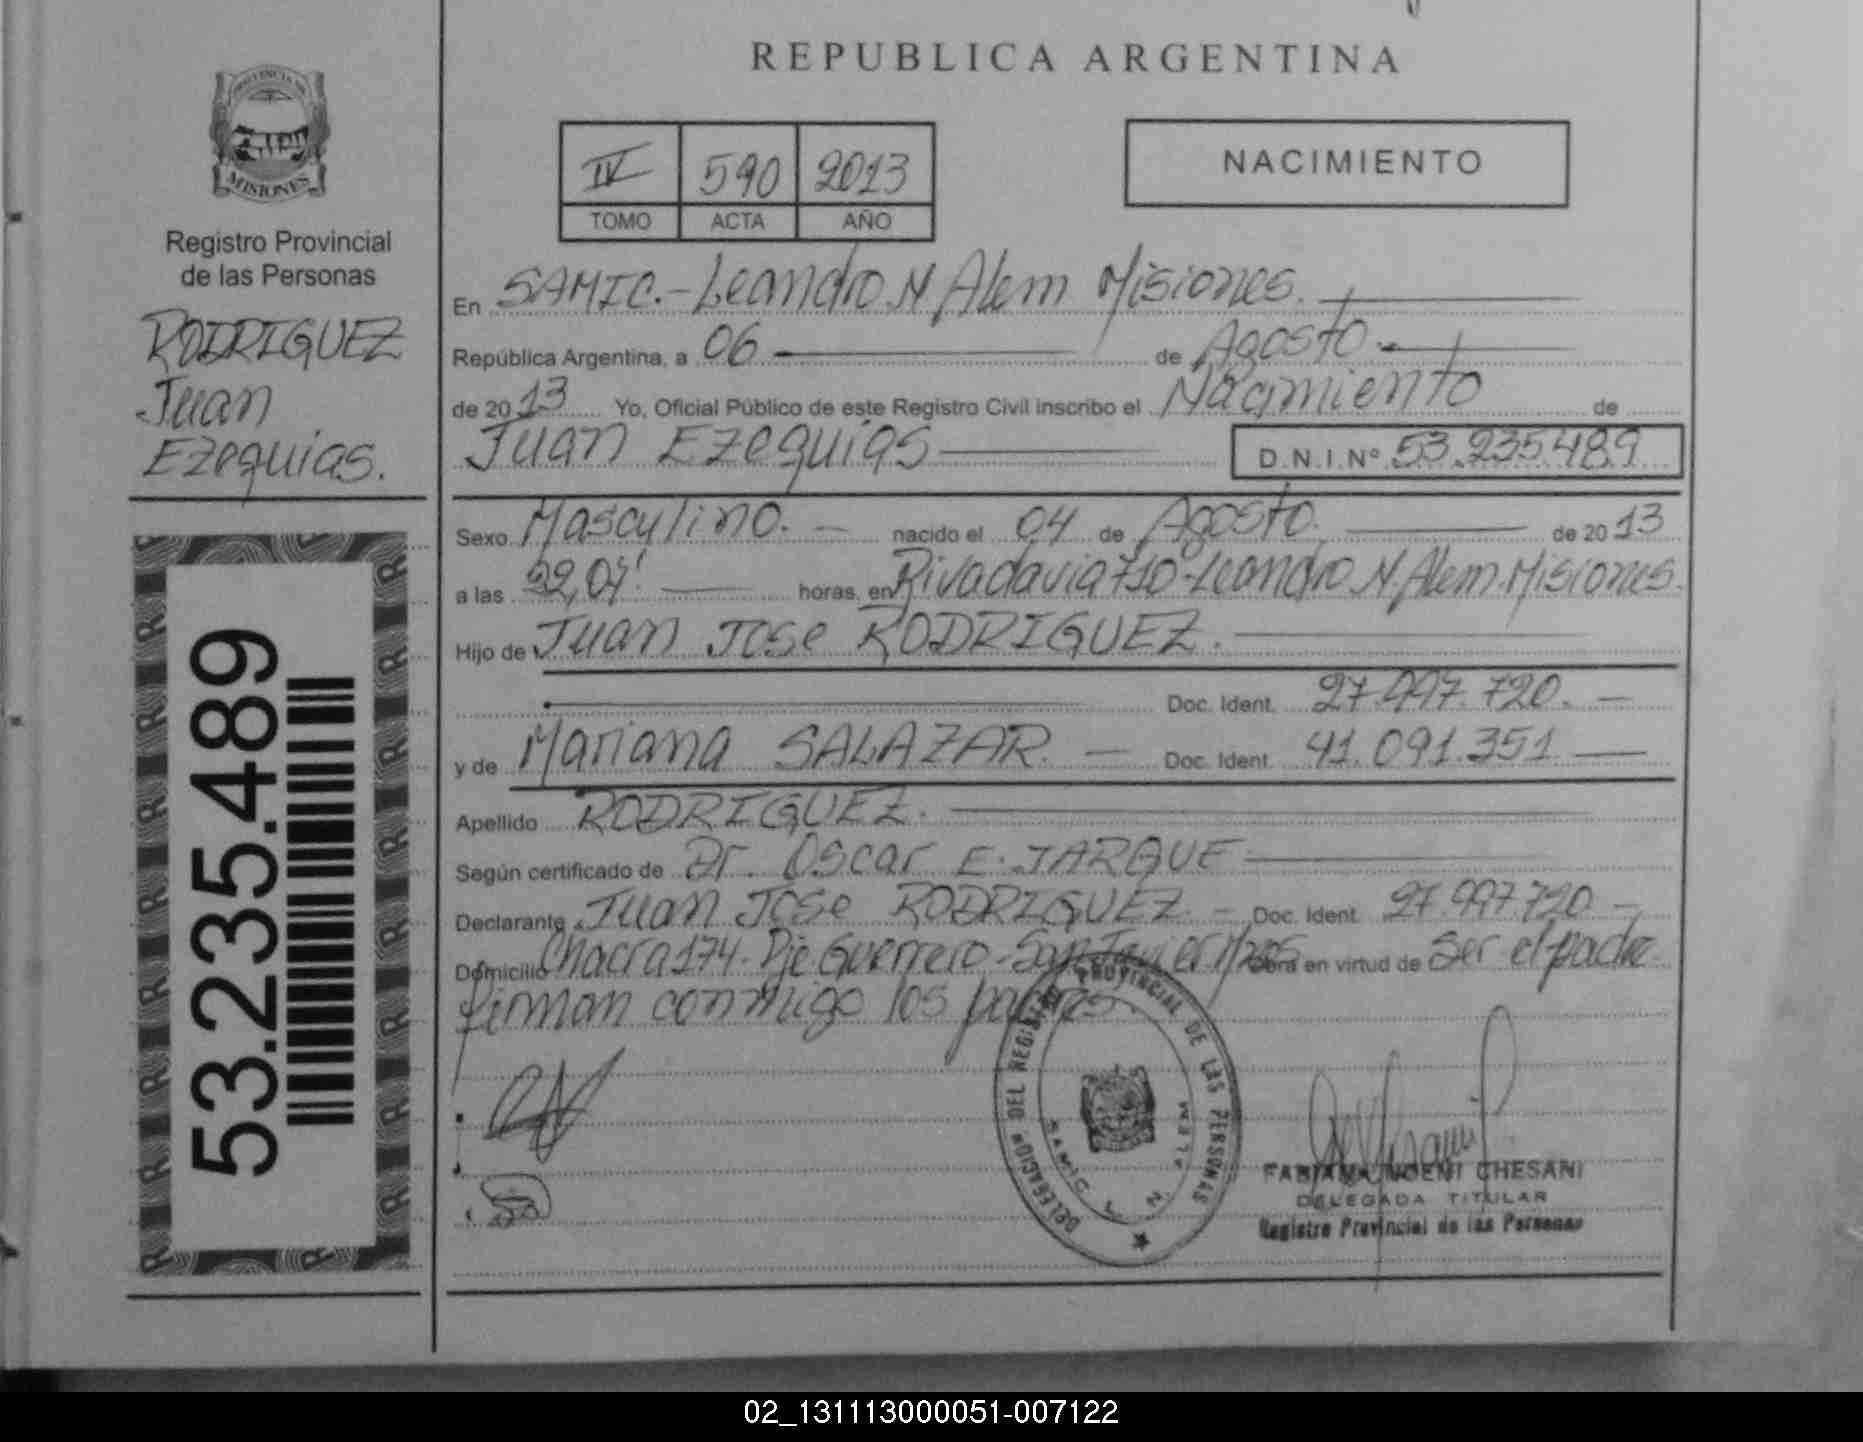 REPUBLICA ARGENTINA
PROVINCIA DE
MISIONES
Registro Provincial
de las Personas
RODRIGUEZ
Juan
Ezequias.
53.235.489
IV 590 2013
TOMO ACTA AÑO
NACIMIENTO
En SAMIC.- Leandro N Alem Misiones.
República Argentina, a 06 de Agosto.-
de 2013 Yo, Oficial Público de este Registro Civil inscribo el Nacimiento de
Juan Ezequias D.N.I.Nº 53.235.489
Sexo Masculino. nacido el 04 de Agosto. de 2013
a las 22,04' horas, en Rivadavia 710-Leandro N. Alem-Misiones.
Hijo de Juan Jose RODRIGUEZ.
Doc. Ident. 27.997.720.
y de Mariana SALAZAR. Doc. Ident. 41.091.351
Apellido RODRIGUEZ.
Según certificado de Dr. Oscar E. JARQUE
Declarante Juan Jose RODRIGUEZ. Doc. Ident. 27.997.720
Domicilio Chacra 174- Pje Guerrero-San Javier en virtud de Ser el padre.
firman conmigo los padres.
DELEGACION DEL REGISTRO PROVINCIAL DE LAS PERSONAS
SAMIC L. N. ALEM
FABIANA NOEMI CHESANI
DELEGADA TITULAR
Registro Provincial de las Personas
02_131113000051-007122